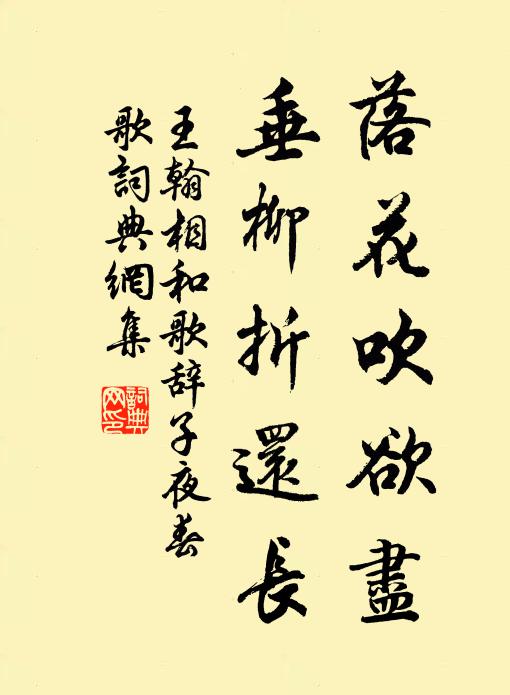 落花吹欲盡
垂柳折還長
王翰相和歌辞子夜春
歌詞典網集
詞典网印